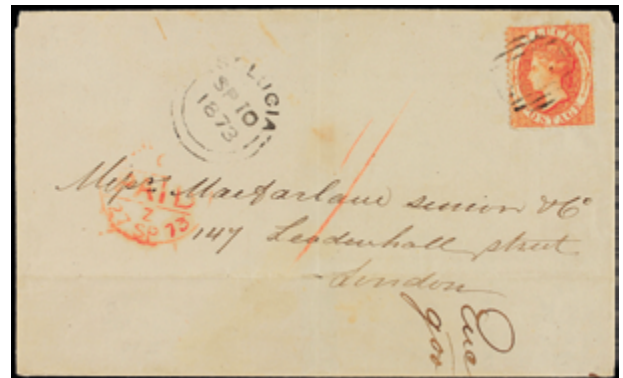 ST LUCIA
SP 10
1873
POSTAGE
PAID
Z
27 SP 73
Mess.rs Macfarlane senior & Co
147 Leadenhall street
London